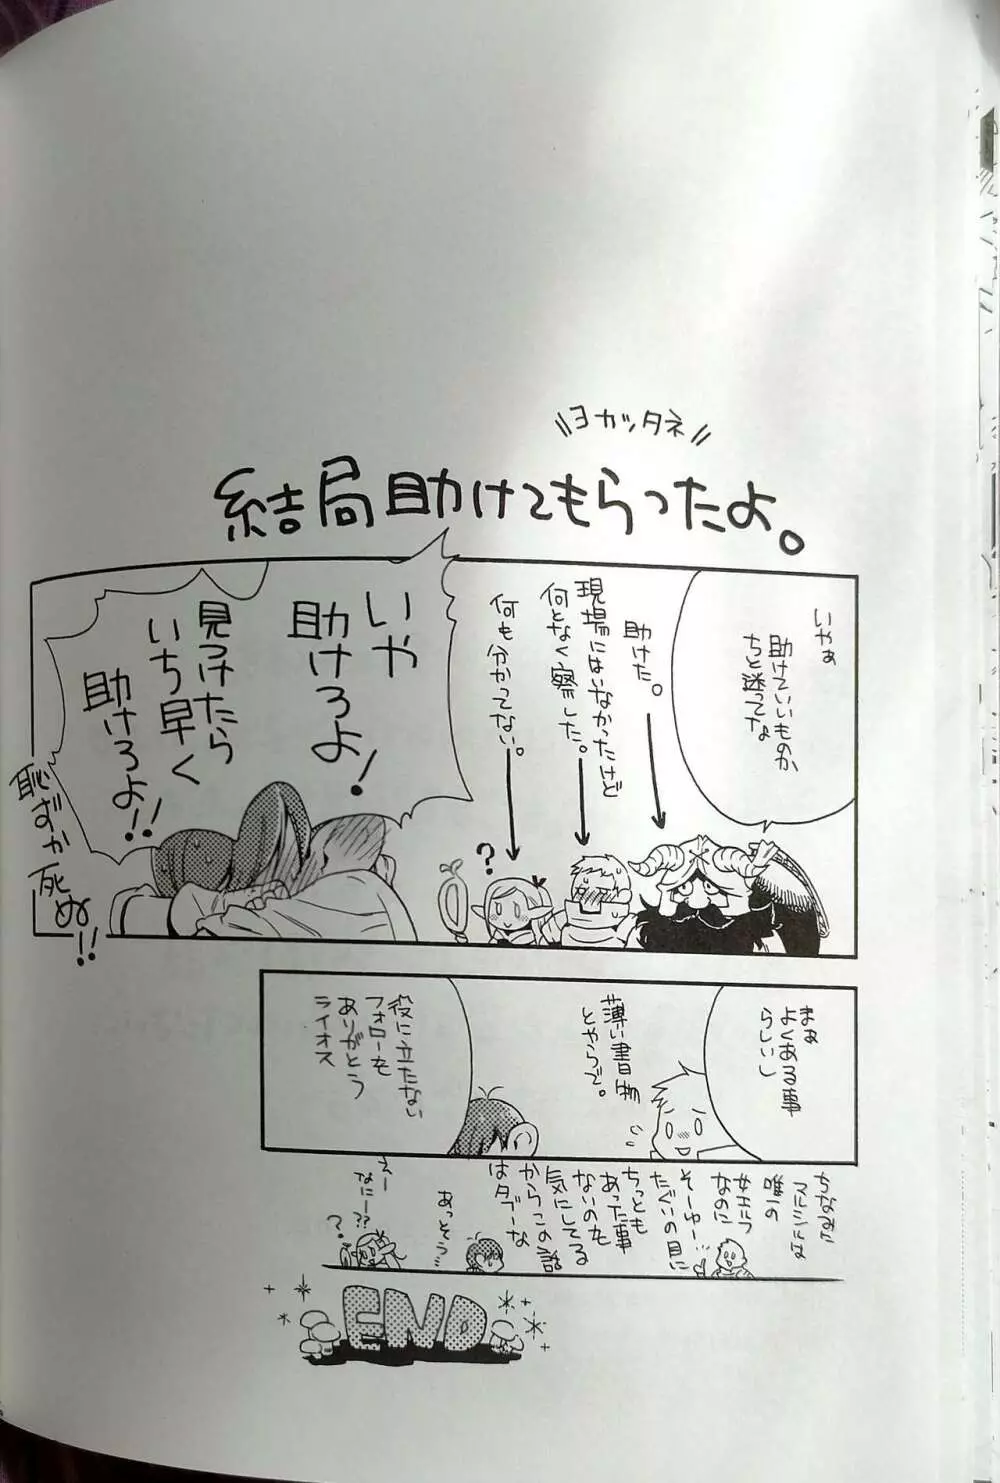 ヨカッタネ
結局助けてもらったよ。
いやぁ
助けていいものか
ちと迷ってな
助けた。
現場にはいなかったけど
何となく察した。
何も分かってない。
?
いや
助けろよ!
見つけたら
いち早く
助けろよ!!
恥ずか死ぬ!!
まぁ
よくある事
らしいし
薄い書物
とやらで。
役に立たない
フォローを
ありがとう
ライオス
ちなみに
マルシルは
唯一の
女エルフ
なのに
そーゆー…
たぐいの目に
ちっとも
あった事
ないのを
気にしてる
からこの話
はタブーな
あっそう…
えー
なにー??
?
END